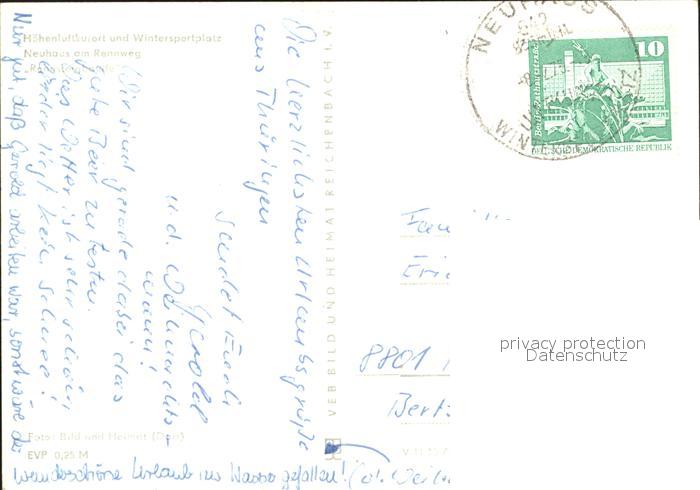 Höhenluftkurort und Wintersportplatz
Neuhaus am Rennweg
Die herzlichsten Urlaubsgrüße
aus Thüringen
sendet Euch
Gerold
u. d. Weihnachts-
mann!
Wir sind gerade dabei das
gute Bier zu testen.
Das Wetter ist sehr schön
leider liegt kein Schnee!
Nur gut, daß Gerold arbeiten war, sonst wäre der
wunderschöne Urlaub ins Wasser gefallen!
Foto: Bild und Heimat
EVP 0,25 M
VEB BILD UND HEIMAT REICHENBACH I. V.
NEUHAUS
WINTERS
10
Berlin, Rathausstraße
DEUTSCHE DEMOKRATISCHE REPUBLIK
8801
privacy protection
Datenschutz